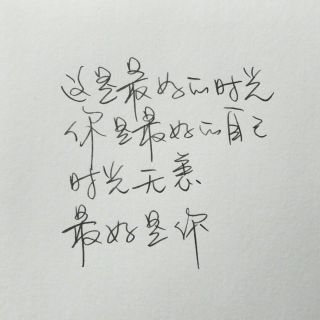 这是最好的时光
你是最好的自己
时光无衰
最好是你